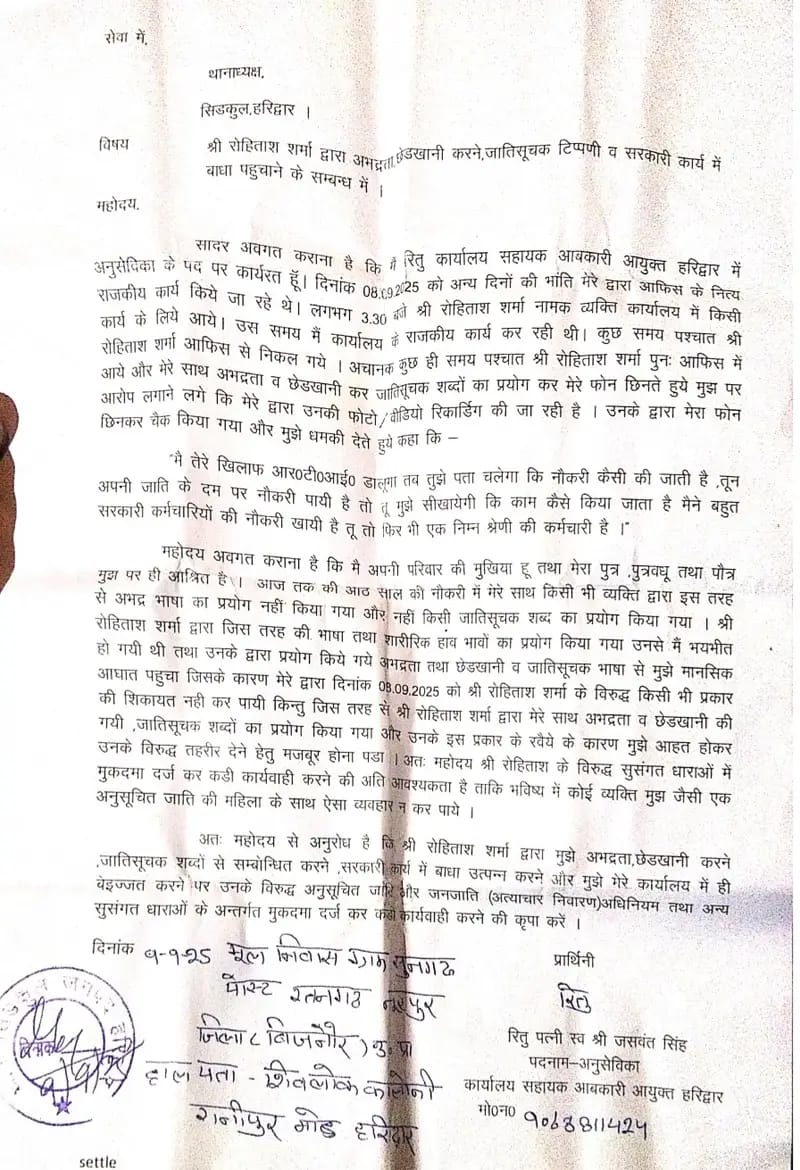 सेवा में,
थानाध्यक्ष,
सिडकुल,हरिद्वार ।
विषय श्री रोहिताश शर्मा द्वारा अभद्रता,छेडखानी करने,जातिसूचक टिप्पणी व सरकारी कार्य में
बाधा पहुचाने के सम्बन्ध में ।
महोदय,
सादर अवगत कराना है कि मैं रितु कार्यालय सहायक आबकारी आयुक्त हरिद्वार में
अनुसेविका के पद पर कार्यरत हूॅ। दिनांक 08.09.2025 को अन्य दिनों की भांति मेरे द्वारा आफिस के नित्य
राजकीय कार्य किये जा रहे थे। लगभग 3.30 बजे श्री रोहिताश शर्मा नामक व्यक्ति कार्यालय में किसी
कार्य के लिये आये। उस समय मैं कार्यालय के राजकीय कार्य कर रही थी। कुछ समय पश्चात श्री
रोहिताश शर्मा आफिस से निकल गये । अचानक कुछ ही समय पश्चात श्री रोहिताश शर्मा पुनः आफिस में
आये और मेरे साथ अभद्रता व छेडखानी कर जातिसूचक शब्दों का प्रयोग कर मेरे फोन छिनते हुये मुझ पर
आरोप लगाने लगे कि मेरे द्वारा उनकी फोटो/वीडियो रिकार्डिग की जा रही है । उनके द्वारा मेरा फोन
छिनकर चैक किया गया और मुझे धमकी देते हुये कहा कि –
"मै तेरे खिलाफ आर0टी0आई0 डालूगा तब तुझे पता चलेगा कि नौकरी कैसी की जाती है ,तून
अपनी जाति के दम पर नौकरी पायी है तो तू मुझे सीखायेगी कि काम कैसे किया जाता है मैने बहुत
सरकारी कर्मचारियों की नौकरी खायी है तू तो फिर भी एक निम्न श्रेणी की कर्मचारी है ।"
महोदय अवगत कराना है कि मै अपनी परिवार की मुखिया हू तथा मेरा पुत्र ,पुत्रवधू तथा पौत्र
मुझ पर ही आश्रित है । आज तक की आठ साल की नौकरी में मेरे साथ किसी भी व्यक्ति द्वारा इस तरह
से अभद्र भाषा का प्रयोग नहीं किया गया और नहीं किसी जातिसूचक शब्द का प्रयोग किया गया । श्री
रोहिताश शर्मा द्वारा जिस तरह की भाषा तथा शारीरिक हाव भावों का प्रयोग किया गया उनसे मैं भयभीत
हो गयी थी तथा उनके द्वारा प्रयोग किये गये अभद्रता तथा छेडखानी व जातिसूचक भाषा से मुझे मानसिक
आघात पहुचा जिसके कारण मेरे द्वारा दिनांक 08.09.2025 को श्री रोहिताश शर्मा के विरुद्ध किसी भी प्रकार
की शिकायत नही कर पायी किन्तु जिस तरह से श्री रोहिताश शर्मा द्वारा मेरे साथ अभद्रता व छेडखानी की
गयी ,जातिसूचक शब्दों का प्रयोग किया गया और उनके इस प्रकार के रवैये के कारण मुझे आहत होकर
उनके विरुद्ध तहरीर देने हेतु मजबूर होना पडा । अतः महोदय श्री रोहिताश के विरुद्ध सुसंगत धाराओं में
मुकदमा दर्ज कर कडी कार्यवाही करने की अति आवश्यकता है ताकि भविष्य में कोई व्यक्ति मुझ जैसी एक
अनुसूचित जाति की महिला के साथ ऐसा व्यवहार न कर पाये ।
अतः महोदय से अनुरोध है कि श्री रोहिताश शर्मा द्वारा मुझे अभद्रता,छेडखानी करने
,जातिसूचक शब्दों से सम्बोन्धित करने ,सरकारी कार्य में बाधा उत्पन्न करने और मुझे मेरे कार्यालय में ही
बेइज्जत करने पर उनके विरुद्ध अनुसूचित जाति और जनजाति (अत्याचार निवारण)अधिनियम तथा अन्य
सुसंगत धाराओं के अन्तर्गत मुकदमा दर्ज कर कडी कार्यवाही करने की कृपा करें ।
दिनांक 9-9-25 मूल निवास ग्राम सुनगढ
पोस्ट रतनगढ नूरपुर
जिला (बिजनौर) उ.प्रा
हाल पता - शिवलोक कालोनी
रानीपुर मोड हरिद्वार
प्रार्थिनी
रितु
रितु पत्नी स्व श्री जसवंत सिंह
पदनाम–अनुसेविका
कार्यालय सहायक आबकारी आयुक्त हरिद्वार
मो0न0 9068811424
settle